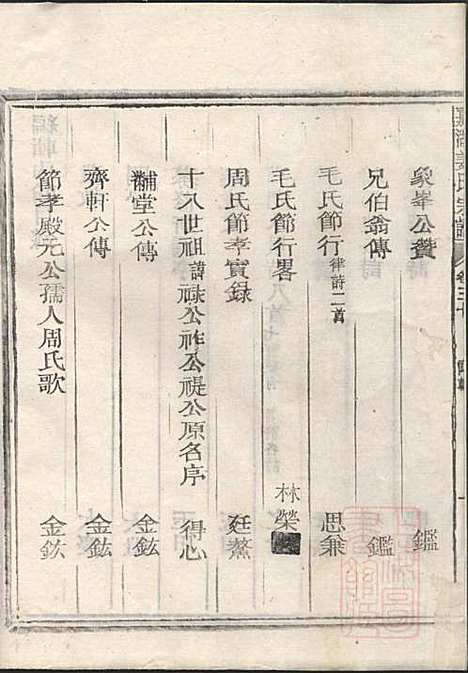 象峯公贊 鑑
兄伯翁傳 鑑
毛氏節行律詩二首 思兼
毛氏節行畧 林榮
周氏節孝實錄 廷鰲
十八世祖諱祿公祚公禔公原名序 得心
黼堂公傳 金鉉
齊軒公傳 金鉉
節孝殿元公孺人周氏歌 金鉉